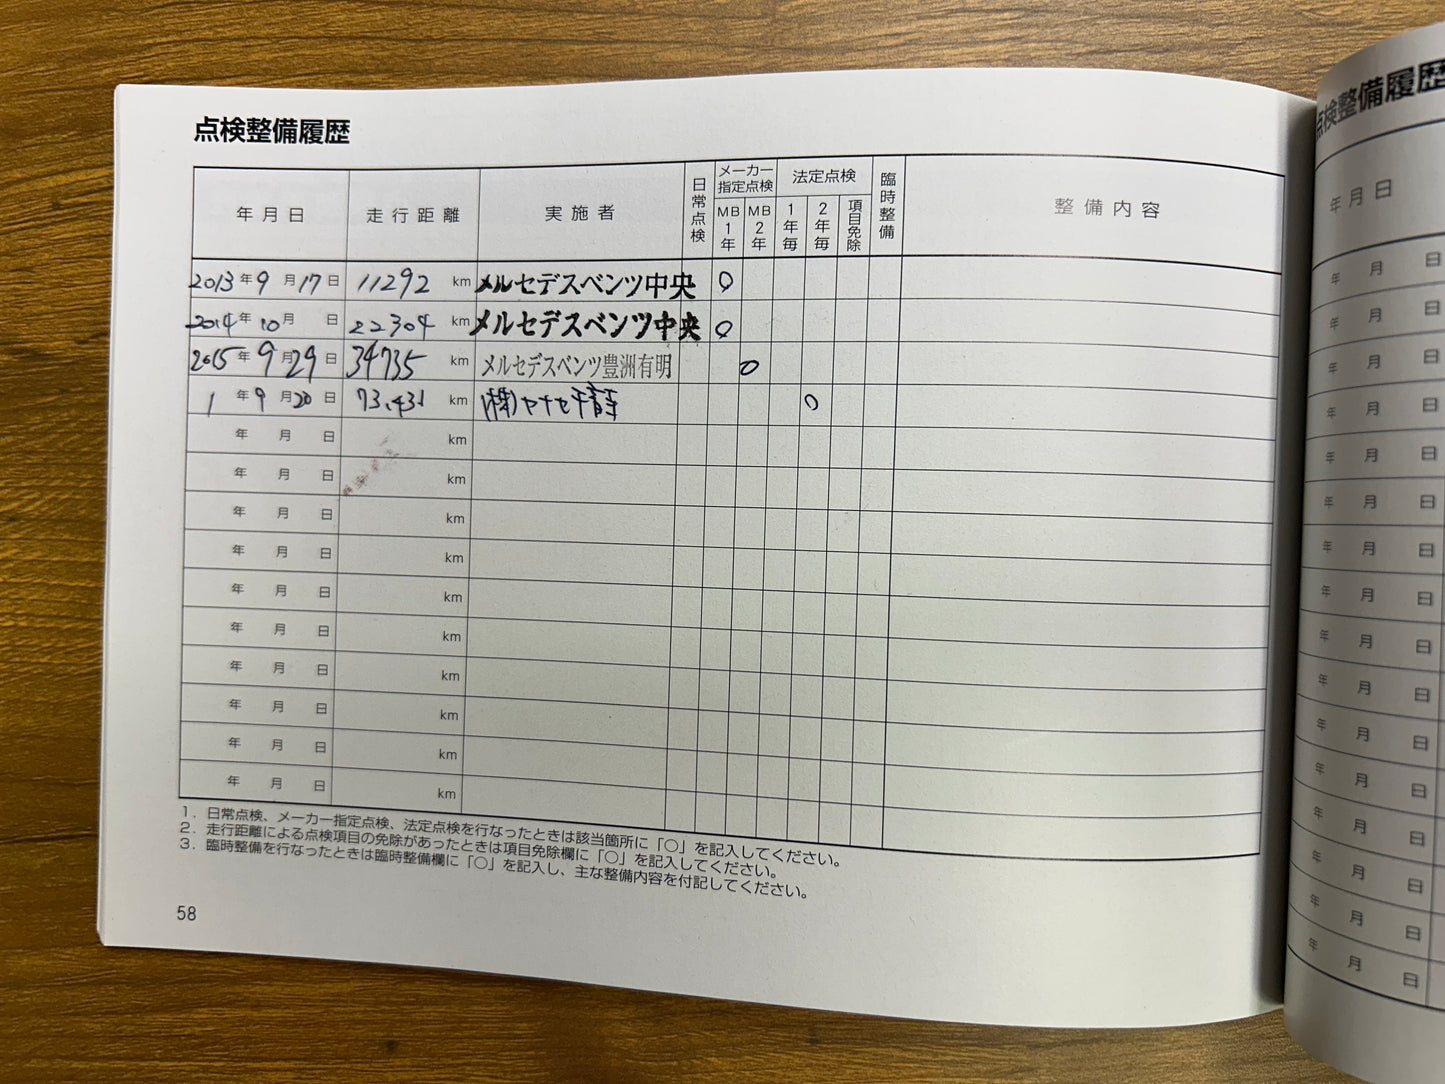 点検整備履歴
年月日 走行距離 実施者 日常点検 メーカー指定点検 MB1年 MB2年 法定点検 1年毎 2年毎 項目免除 臨時整備 整備内容
2013年9月17日 11292km メルセデスベンツ中央 〇
2014年10月 日 22304km メルセデスベンツ中央 〇
2015年9月29日 34735km メルセデスベンツ豊洲有明 〇
1年9月20日 73,431km (株)ヤナセ 〇
年 月 日 km
年 月 日 km
年 月 日 km
年 月 日 km
年 月 日 km
年 月 日 km
年 月 日 km
年 月 日 km
年 月 日 km
年 月 日 km
1. 日常点検、メーカー指定点検、法定点検を行なったときは該当箇所に「〇」を記入してください。
2. 走行距離による点検項目の免除があったときは項目免除欄に「〇」を記入してください。
3. 臨時整備を行なったときは臨時整備欄に「〇」を記入し、主な整備内容を付記してください。
58
点検整備履歴
年月日
年 月 日
年 月 日
年 月 日
年 月 日
年 月 日
年 月 日
年 月 日
年 月 日
年 月 日
年 月 日
年 月 日
年 月 日
年 月 日
年 月 日
年 月 日
年 月 日